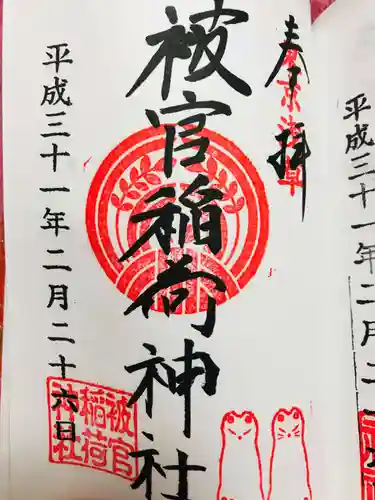 奉拝
東京浅草
被官稲荷神社
平成三十一年二月二十六日
被官
稲荷
神社
平成三十一年二月二